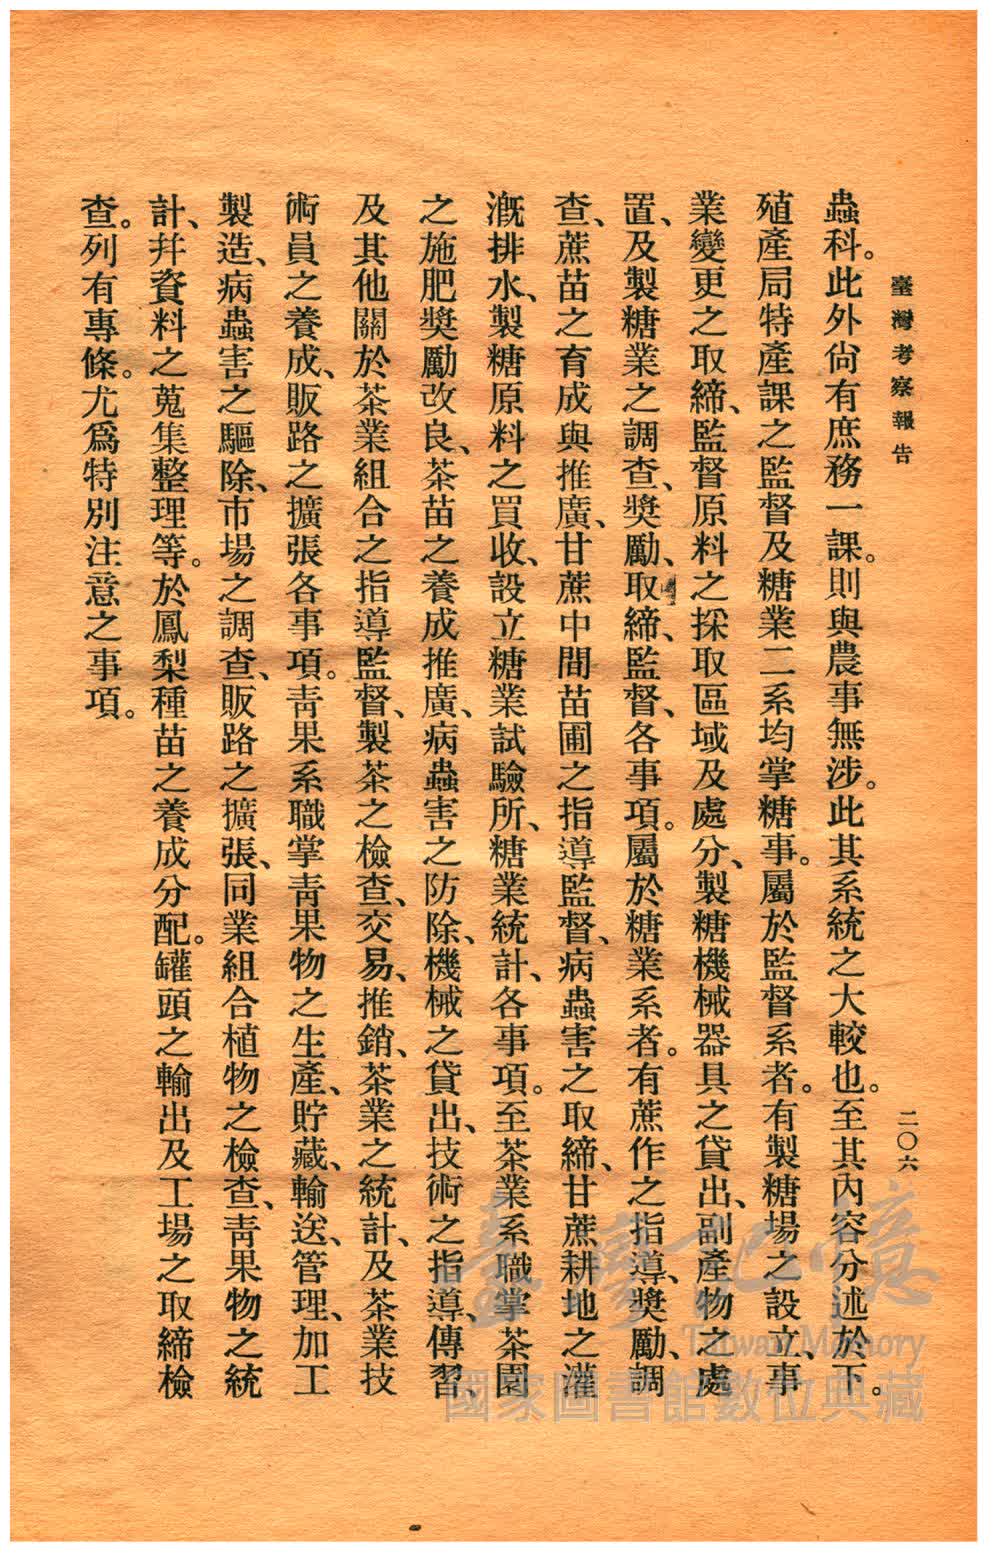 臺灣考察報告
二〇六
蟲科。此外尙有庶務一課。則與農事無涉。此其系統之大較也。至其內容分述於下。
殖產局特產課之監督及糖業二系均掌糖事。屬於監督系者。有製糖場之設立、事
業變更之取締、監督原料之採取區域及處分、製糖機械器具之貸出、副產物之處
置、及製糖業之調查、獎勵、取締、監督、各事項。屬於糖業系者。有蔗作之指導、獎勵、調
查、蔗苗之育成與推廣、甘蔗中間苗圃之指導監督、病蟲害之取締、甘蔗耕地之灌
漑排水、製糖原料之買收、設立糖業試驗所、糖業統計、各事項。至茶業系職掌茶園
之施肥獎勵改良、茶苗之養成推廣、病蟲害之防除、機械之貸出、技術之指導、傳習、
及其他關於茶業組合之指導監督、製茶之檢查、交易、推銷、茶業之統計、及茶業技
術員之養成、販路之擴張各事項。靑果系職掌靑果物之生產、貯藏、輸送、管理、加工
製造、病蟲害之驅除、市場之調查、販路之擴張、同業組合植物之檢查、靑果物之統
計、幷資料之蒐集整理等。於鳳梨種苗之養成分配。罐頭之輸出及工場之取締檢
查。列有專條。尤爲特別注意之事項。
臺灣記憶
Taiwan Memory
國家圖書館數位典藏